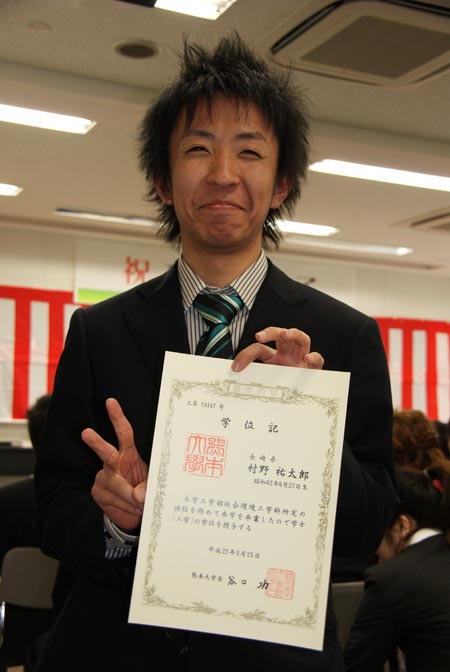 祝
工第 24447 号
学位記
熊本
大學
長崎県
村野 祐太郎
昭和62年6月27日生
本学工学部社会環境工学科所定の
課程を修めて本学を卒業したので学士
(工学)の学位を授与する
平成22年3月25日
熊本大学長 谷口 功